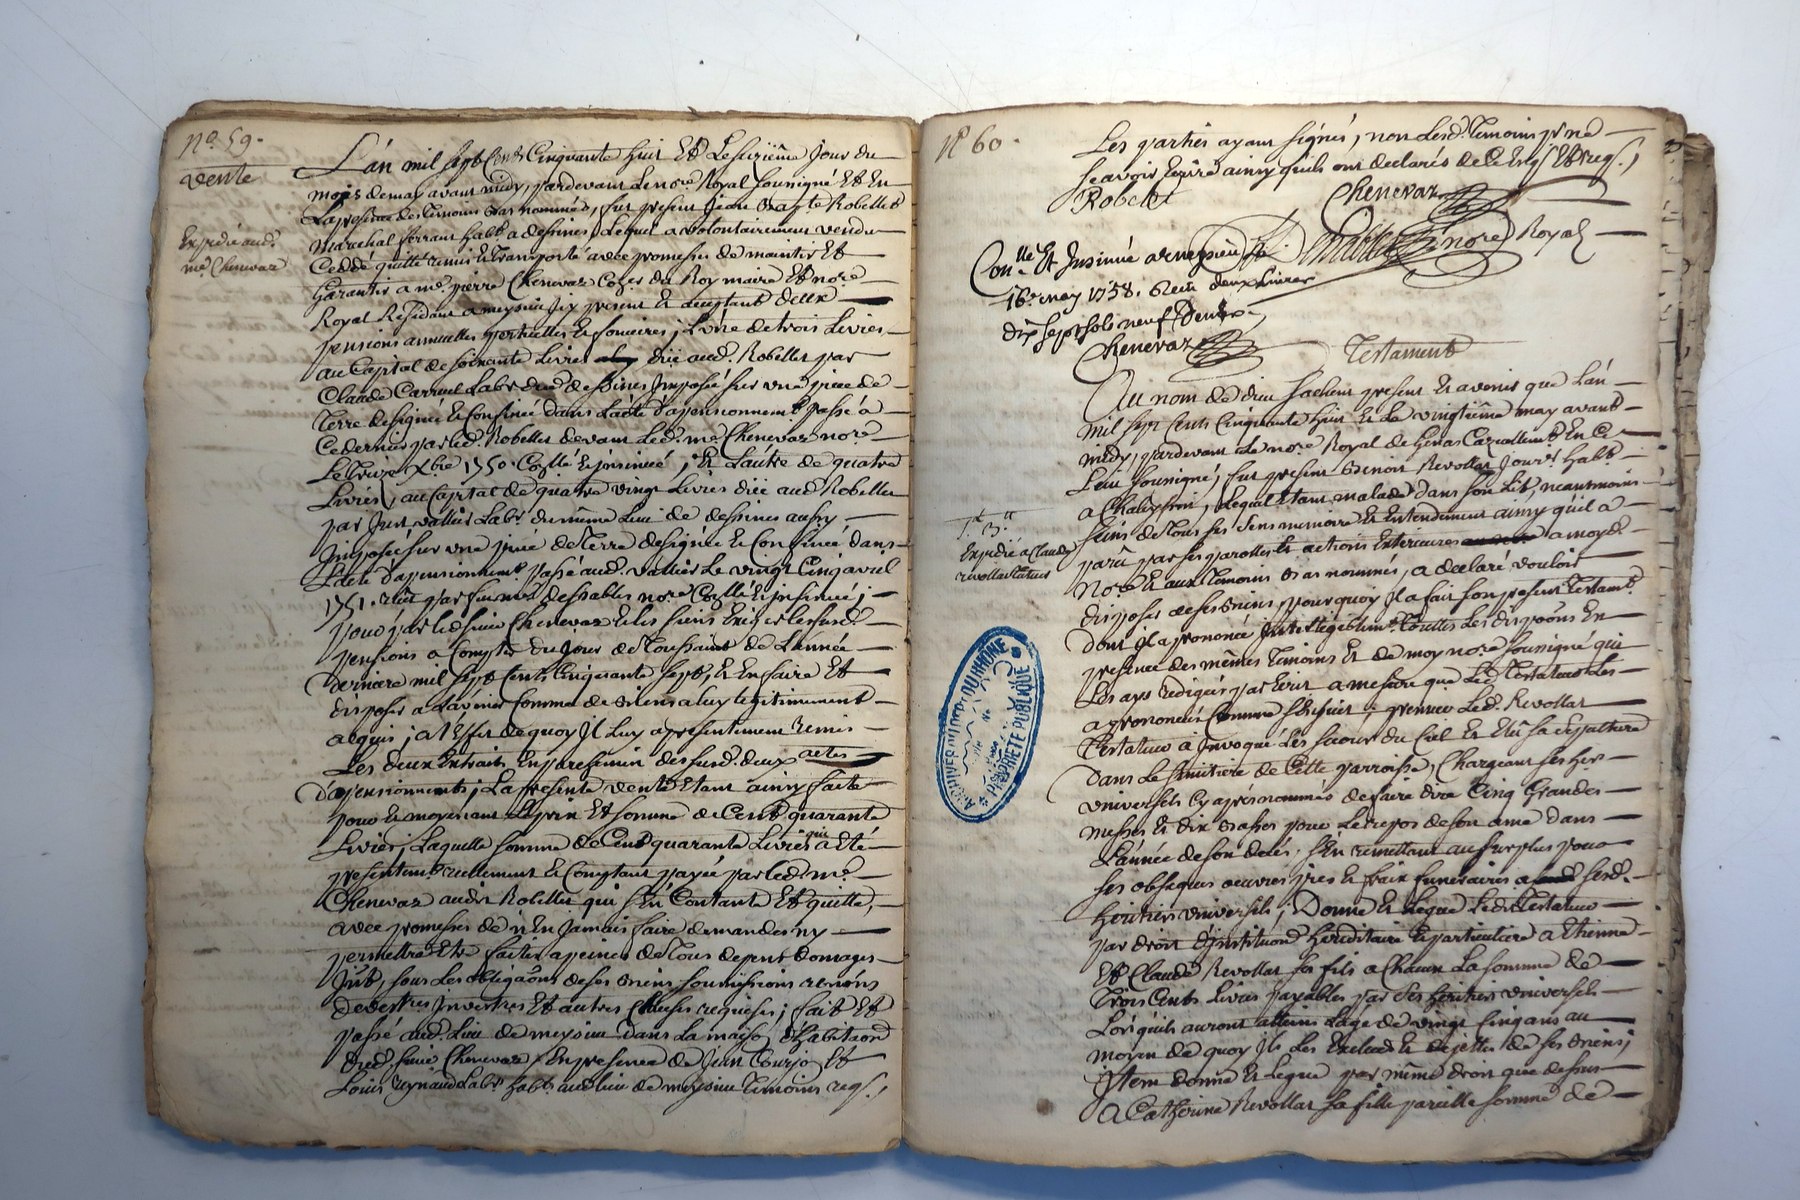 No. 59.
vente
Expedié aud.
me Chenevaz
L'an mil sept Cents Cinquante huit Et Le seizième Jour du
mois de may avant midy, pardevant Le no.re Royal soussigné Et En
La presence des Temoins bas nommés, fut present Jean Robellet
marechal ferrant habt a dessines, Lequel a volontairement vendu
Ceddé quitté remis Et transporté avec promesse de maintir Et
Garantir a me. pierre Chenevaz du Roy maire Et no.re
Royal Residant a meysieu Jcy present Et acceptant deux
pensions annuelles Et foncieres; L'une de trois Livres
au Capital de soixante Livres düe aud. Robellet par
Claude Labr. de dessines Imposée sur une piece de
Terre designée Et Confinée dans L'acte d'apensionnement passé a
Ce dernier par led. Robellet devant Led. me. Chenevaz no.re
Le xbre 1750. Et insinué; Et L'autre de quatre
Livres, au Capital de quatre vingt Livres düe aud. Robellet
par Labr. du même Lieu de dessines aussy
Jmposée sur une piece de Terre designée Et Confinée dans
L'acte d'apensionnemt. passé aud. Le vingt Cinq avril
1751. reçu par no.re Et insinué;
pour par led. sieur Chenevaz Et les siens Exiger les susd.
pensions a Compter du Jour de Toussaint de L'année
derniere mil sept Cents Cinquante sept, Et En faire Et
disposer a L'avenir Comme de biens a luy legitimement
acquis; a l'Effet de quoy Jl Luy a presentement remis
Les deux Extraits En parchemin des susd. deux actes
d'apensionnements; La presente vente Etant ainsy faite
pour Et moyenant Le prix Et somme de Cent quarante
Livres, Laquelle somme de Cent quarante Livres a Eté
presentemt. reellement Et Comptant payée par led. me.
Chenevaz audit Robellet qui s'En Contante Et quitte,
avec promesse de n'En Jamais faire demande ny
permettre Etre faite a peine de Tous depens domages
Jnts, sous Les obligaons de ses biens soumissions
Et autres Clauses requises; fait Et
passé aud. Lieu de meysieu dans La maison d'habitaon
dud. sieur Chenevaz En presence de Jean Et
Louis Reynaud Labrs. habts. aud. Lieu de meysieu Temoins req.s;
No 60.
Les parties ayant signés, non Lesd. Temoins pr. ne
sçavoir Ecrire ainsy qu'ils ont declarés de Ce Enq.s Et req.s;
Robelet
Chenevaz
no.re Royal
Con.llé Et Insinué a meysieu Le
16e. may 1758. Reçu deux Livres
dix sept sols neuf deniers
Chenevaz
Testament
Expedié a Claude
revollat
Au nom de dieu sachent present Et avenir que L'an
mil sept Cents Cinquante huit Et Le vingtième may avant
midy, pardevant Le no.re Royal de Genas En Ce
Lieu soussigné, fut present Benoit Revollat Jour.r habt.
a Chaleyssin, Lequel Etant malade dans son Lit, neantmoins
sains de Tous ses sens memoire Et Entendement ainsy qu'il a
parû par ses parolles Et actions Exterieures a moyd.
No.re Et aux Temoins bas nommés, a declaré vouloir
disposer de ses biens, pourquoy Jl a fait son present Testamt.
dont Jl a prononcé Toutes Les dispoons En
presence des mêmes Temoins Et de moy no.re soussigné qui
Les ays redigées par Ecrit a mesure que Led. Testateur Les
a prononcées Comme s'Ensuit; premier Led. Revollat
Testateur a Jnvoqué Les secours du Ciel Et Elû sa sepulture
dans Le simitiere de Cette parroisse, Chargeant ses hers
universels Cy après nommés de faire dire Cinq Grandes
messes Et dix basses pour Le repos de son ame dans
L'année de son decés; s'En remettant au surplus pour
ses obseques oeuvres pies Et fraix funeraires a sesd.
heritiers universels; Donne Et Legue Led. Testateur
par droit d'instituon hereditaire Et particuliere a Etienne
Et Claude Revollat ses fils a Chacun La somme de
Trois Cents Livres payables par ses heritiers universels
Lorsqu'ils auront atteint L'age de vingt Cinq ans au
moyen de quoy Jl Les Exclud Et dejette de ses biens;
Jtem donne Et Legue par même droit que dessus
a Catherine Revollat sa fille pareille somme de
ARCHIVES DU DEPT DU RHONE
PROPRIETE PUBLIQUE